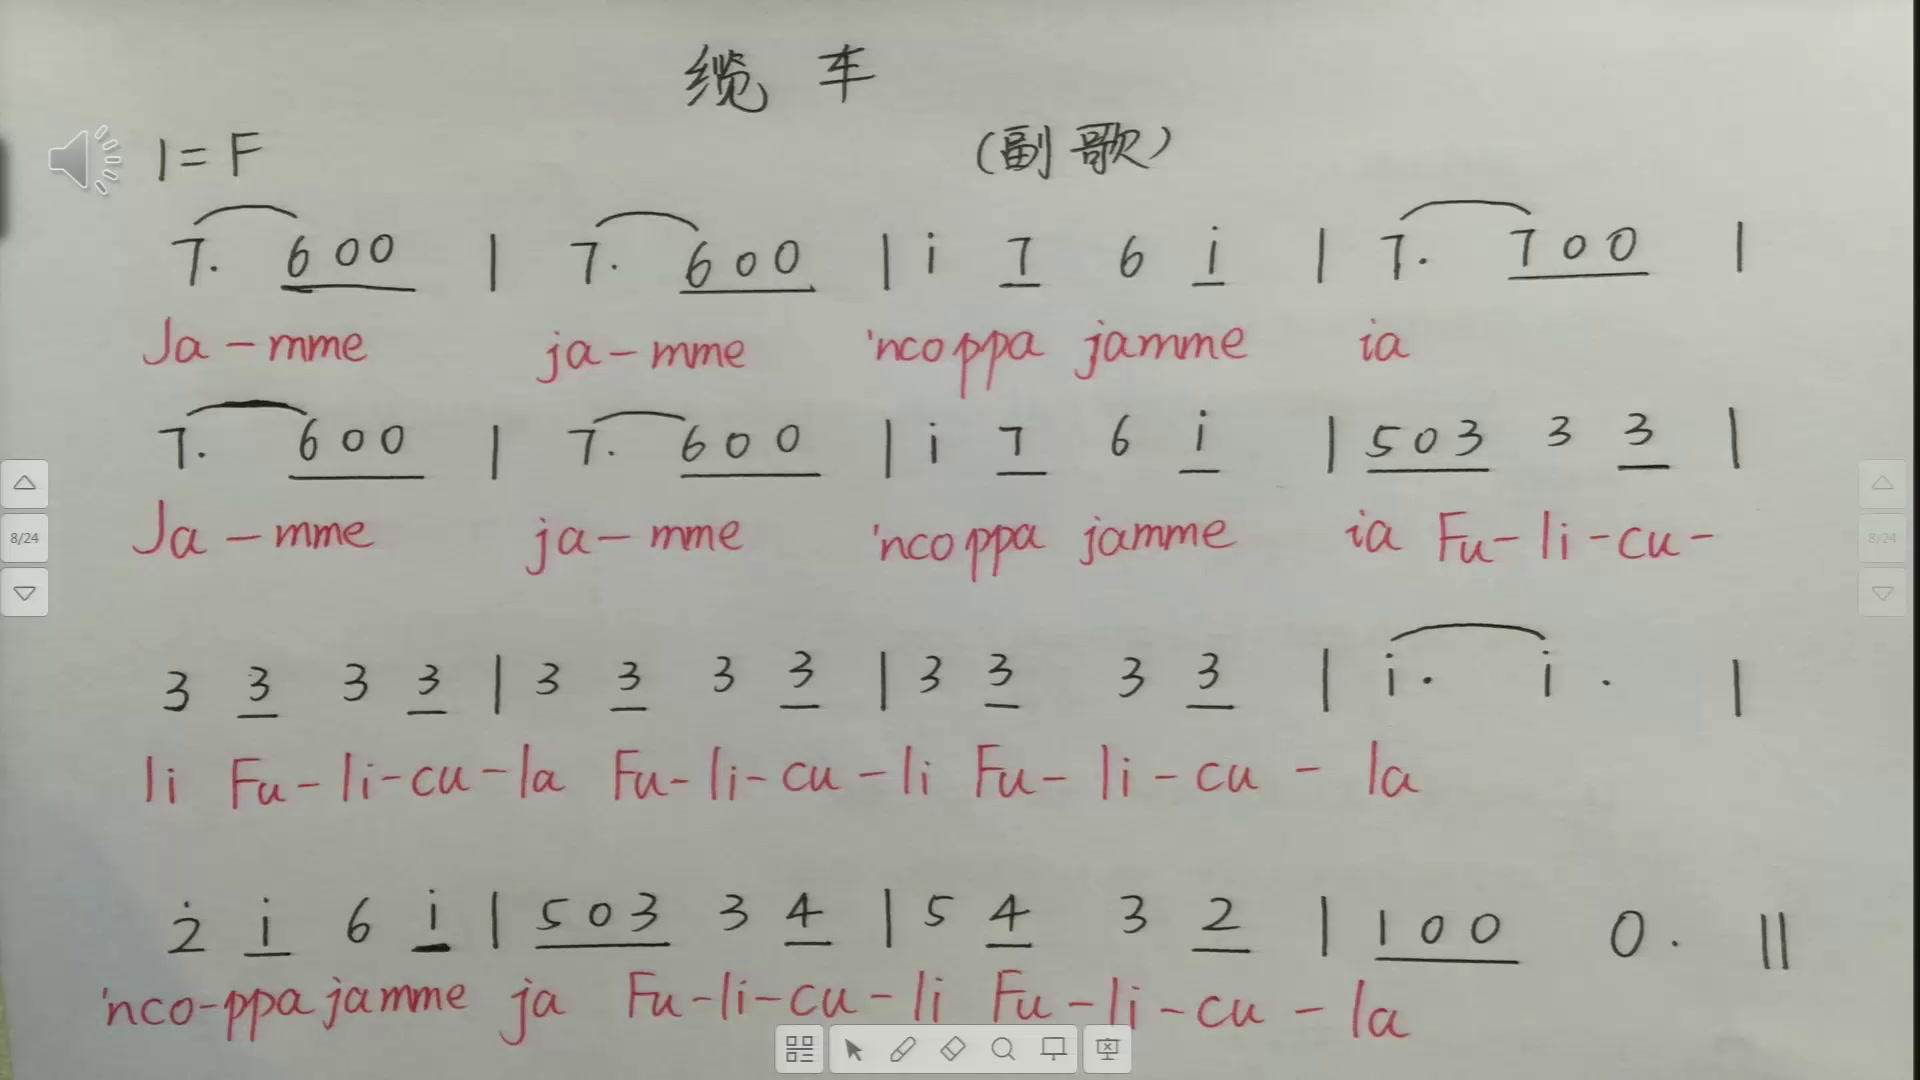 缆车
1=F
(副歌)
7. 600 | 7. 600 | i 7 6 i | 7. 700 |
Ja-mme ja-mme 'ncoppa jamme ia
7. 600 | 7. 600 | i 7 6 i | 503 3 3 |
Ja-mme ja-mme 'ncoppa jamme ia Fu-li-cu-
3 3 3 3 | 3 3 3 3 | 3 3 3 3 | i. i. |
li Fu-li-cu-la Fu-li-cu-li Fu-li-cu-la
2̇ i 6 i | 503 3 4 | 5 4 3 2 | 100 0. ||
'nco-ppa jamme ja Fu-li-cu-li Fu-li-cu-la
8/24
8/24